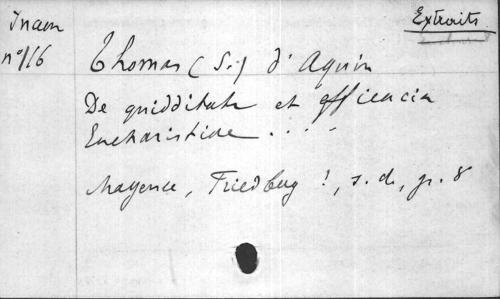 Extraits
Inam
n° 116
Thomas (St) d'Aquin
De quidditate et efficacia
Eucharistiae . . . .
Mayence, Friedberg !, s. d., gr. 8